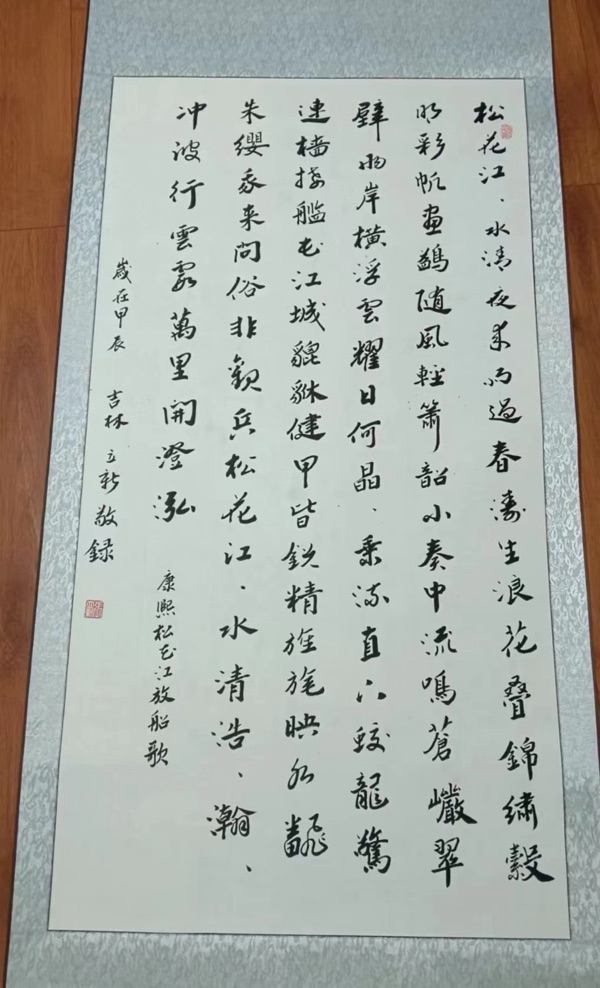 松花江、水清夜来雨过春濤生浪花叠錦繡縠
明彩帆畫鷁随風輕簫韶小奏中流鳴蒼巖翠
壁兩岸橫浮雲耀日何晶、乘流直下蛟龍驚
連檣接艦屯江城貔貅健甲皆鋭精旌旄映水翻
朱纓我来問俗非觀兵松花江、水清浩、瀚、
冲波行雲霞萬里開澄泓
康熙松花江放船歌
歲在甲辰 吉林 立新 敬録